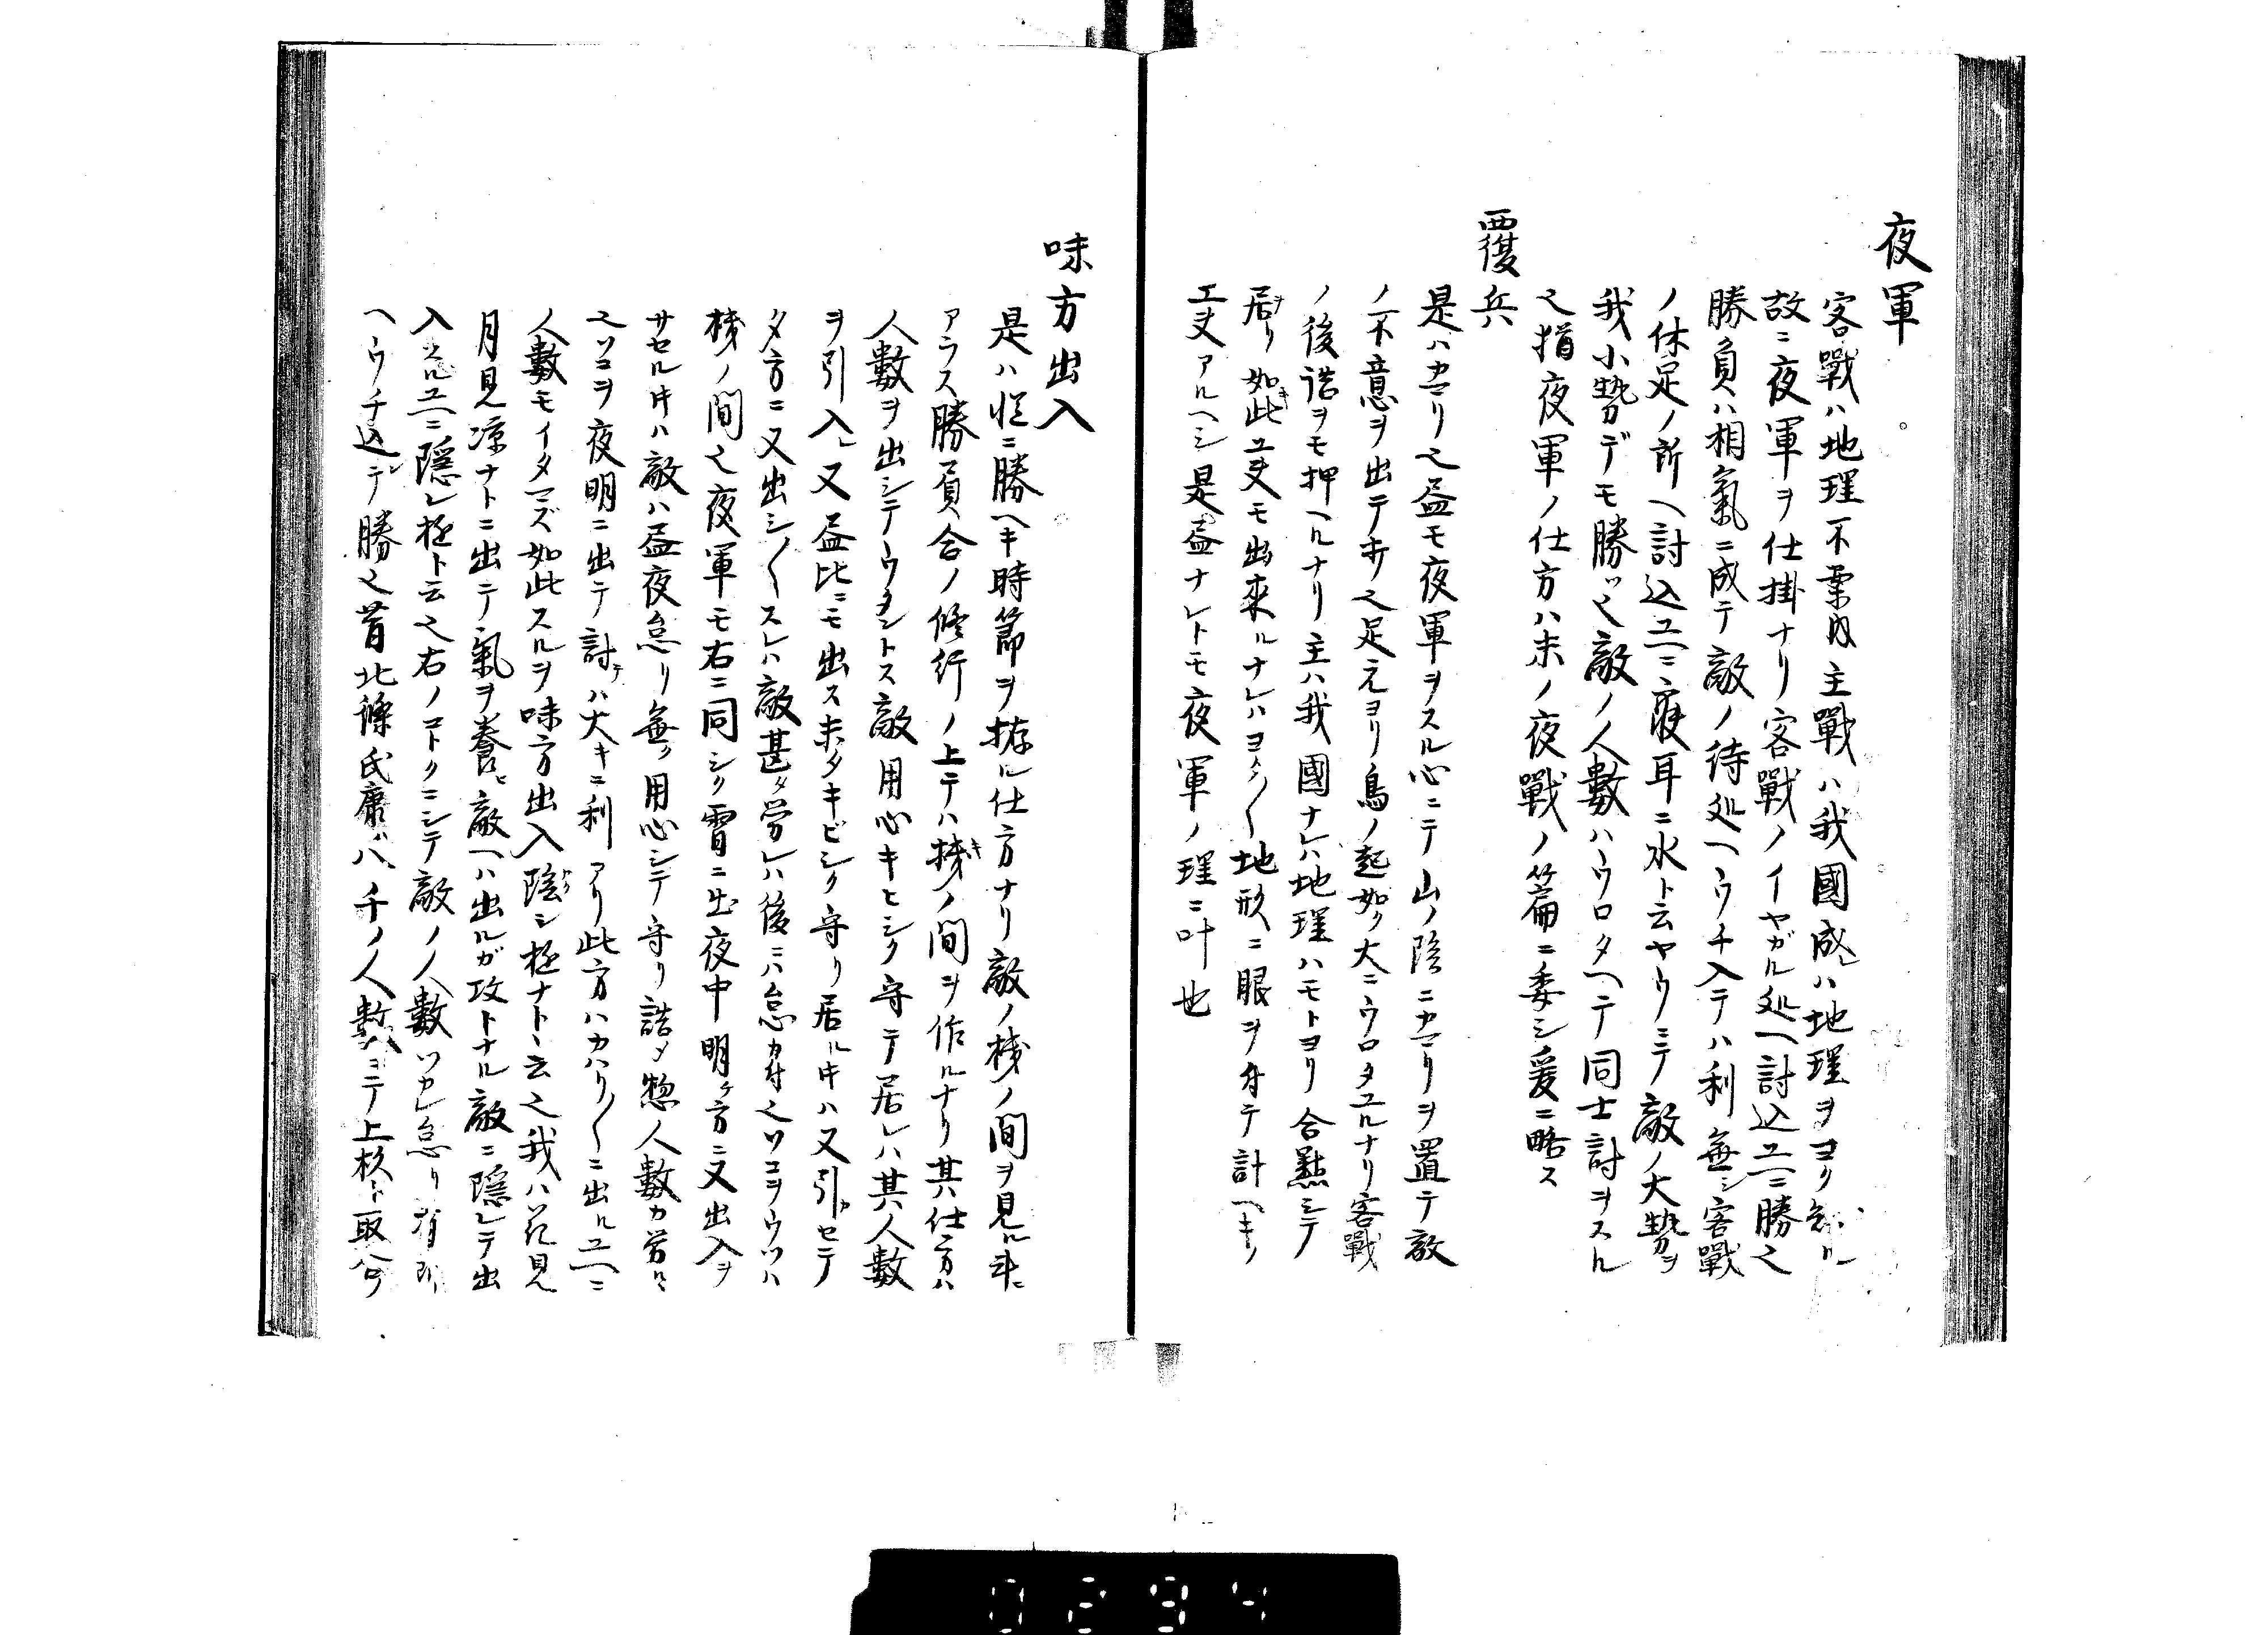 夜軍
客戰ハ地理不案内主戰ハ我國成レハ地理ヲヨク知ル
故ニ夜軍ヲ仕掛ナリ客戰ノイヤガル処ヘ討込ユヘニ勝之
勝負ハ相氣ニ成テ敵ノ待処ヘウチ入テハ利無シ客戰
ノ休足ノ所ヘ討込ユヘニ寐耳ニ水ト云ヤウミテ敵ノ大勢ヲ
我小勢デモ勝ツ之敵ノ人數ハウロタヘテ同士討ヲスル
之猶夜軍ノ仕方ハ末ノ夜戰ノ篇ニ委シ爰ニ略ス
覆兵
是ハカマリ之昼モ夜軍ヲスル心ニテ山ノ陰ニカマリヲ置テ敵
ノ不意ヲ出テ討之足元ヨリ鳥ノ起如ク大ニウロタユルナリ客戰
ノ後詰ヲモ押ヘルナリ主ハ我國ナレハ地理ハモトヨリ合點シテ
居リ如此工夫モ出来ルナレハヨク〱地形ニ眼ヲ付テ計ヘキノ
工夫アルヘシ是昼ナレトモ夜軍ノ理ニ叶也
味方出入
是ハ恒ニ勝ヘキ時節ヲ拵ル仕方ナリ敵ノ機ノ間ヲ見ル斗ニ
アラス勝負合ノ修行ノ上テハ機ノ間ヲ作ルナリ其仕方ハ
人數ヲ出シテウタントス敵用心キヒシク守テ居レハ其人數
ヲ引入レ又昼比ニモ出ス未タキビシク守リ居ル時ハ又引カセテ
夕方ニ又出シ〱スレハ敵甚タ労レハ後ニハ怠カ付之ソコヲウツハ
機ノ間之夜軍モ右ニ同シク宵ニ出夜中明ケ方ニ又出入ヲ
サセル時ハ敵ハ昼夜怠リ無ク用心シテ守リ詰タ惣人數カ労ルヽ
之ソコヲ夜明ニ出テ討テハ大キニ利アリ此方ハカハリ〱ニ出ルユヘニ
人數モイタマズ如此スルヲ味方出入隠シ極ナトヽ云之我ハ花見
月見涼ナトニ出テ氣ヲ養ヒ敵ヘハ出ルガ攻トナル敵ニ隠レテ出
入スルユヘニ隠レ極ト云之右ノコトクニシテ敵ノ人數ツカレ怠リ有所
ヘウチ込テ勝之昔北條氏康ハ八千ノ人數ヨニテ上杉ト取合